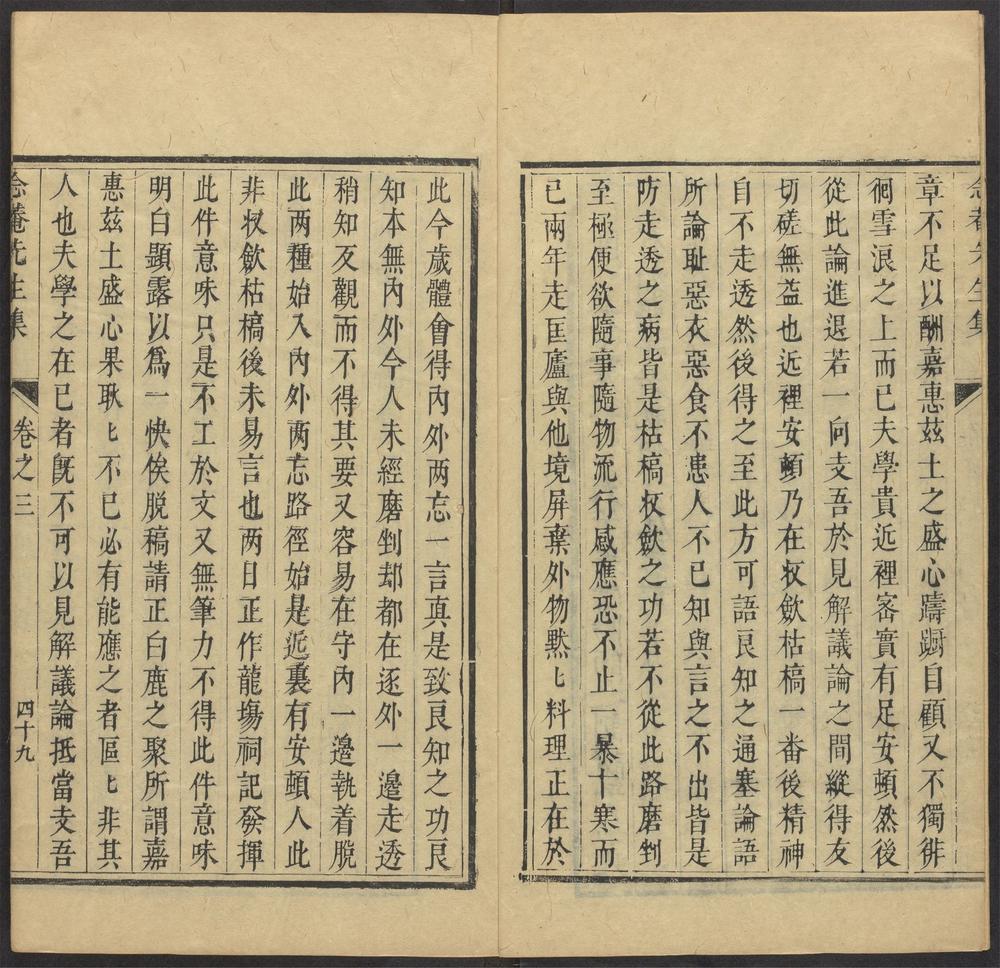 念菴先生集
章不足以酬嘉惠茲土之盛心躊躕自顧又不獨徘
徊雪浪之上而已夫學貴近裡審實有足安頓然後
從此論進退若一向支吾於見解議論之間縱得友
切磋無益也近裡安頓乃在収歛枯槁一番後精神
自不走透然後得之至此方可語良知之通塞論語
所論耻惡衣惡食不患人不已知與言之不出皆是
防走透之病皆是枯槁収歛之功若不從此路磨剉
至極便欲隨事隨物流行感應恐不止一暴十寒而
已兩年走匡廬與他境屏棄外物黙〻料理正在於
此今歲體會得內外両忘一言真是致良知之功良
知本無內外今人未經磨剉却都在逐外一邊走透
稍知反觀而不得其要又容易在守內一邊執着脫
此両種始入內外両忘路徑始是近裏有安頓人此
非収歛枯槁後未易言也両日正作龍塲祠記發揮
此件意味只是不工於文又無筆力不得此件意味
明白顯露以爲一快俟脫稿請正白鹿之聚所謂嘉
惠茲土盛心果耿〻不已必有能應之者區〻非其
人也夫學之在已者旣不可以見解議論抵當支吾
念菴先生集
卷之三
四十九